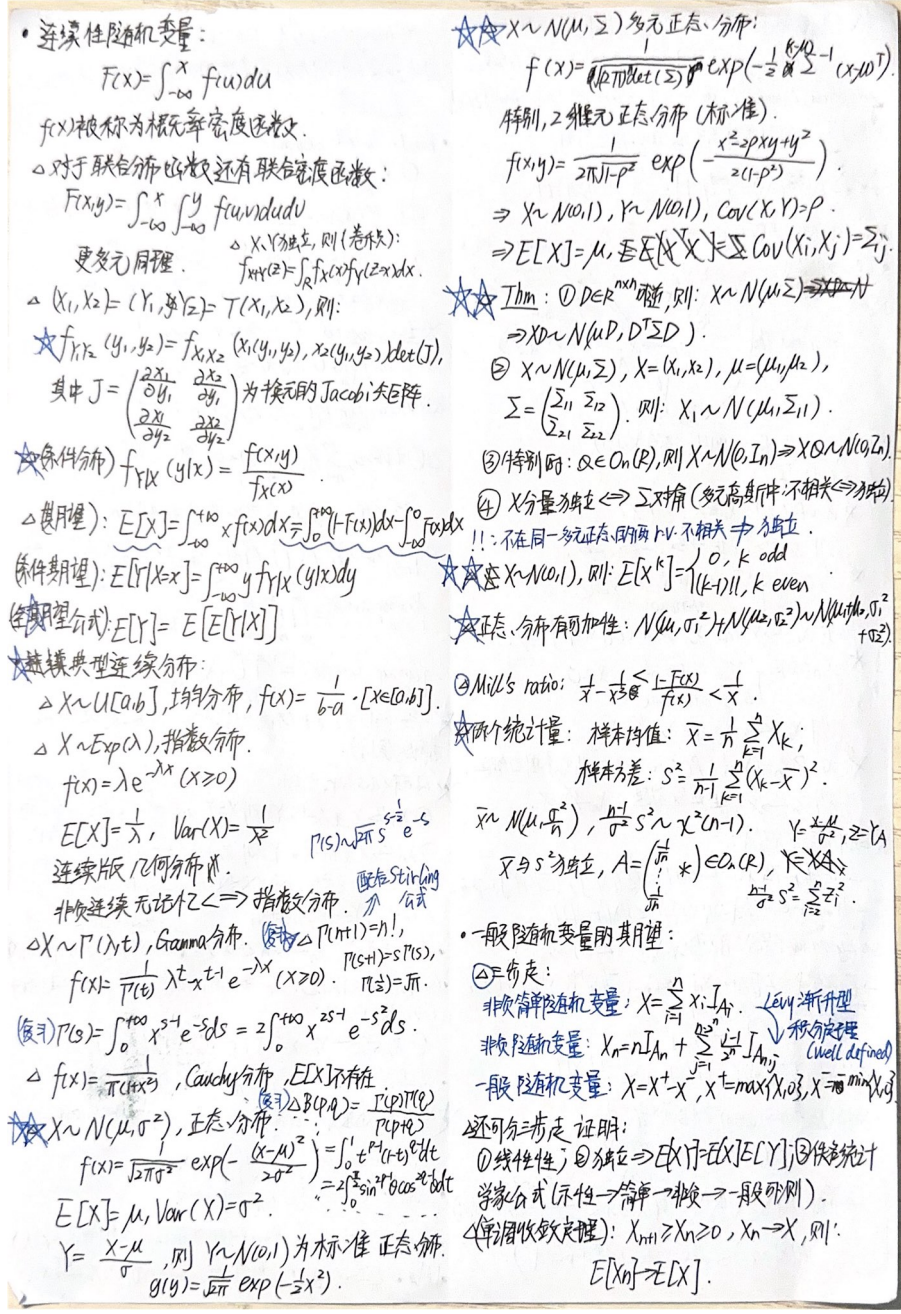 • 连续性随机变量:
F(x)=∫_{-∞}^{x} f(u)du
f(x)被称为概率密度函数.
△对于联合分布函数还有联合密度函数:
F(x,y)=∫_{-∞}^{x}∫_{-∞}^{y} f(u,v)dudv
更多元同理.
△ X,Y独立,则(卷积):
f_{X+Y}(z)=∫_R f_X(x)f_Y(z-x)dx.
△ (X₁,X₂)→(Y₁,Y₂)=T(X₁,X₂),则:
☆f_{Y₁Y₂}(y₁,y₂)=f_{X₁X₂}(x₁(y₁,y₂),x₂(y₁,y₂))det(J),
其中 J=(∂x₁/∂y₁ ∂x₂/∂y₁; ∂x₁/∂y₂ ∂x₂/∂y₂)为换元的Jacobi矩阵.
☆(条件分布) f_{Y|X}(y|x)=f(x,y)/f_X(x)
△(期望): E[X]=∫_{-∞}^{+∞} xf(x)dx=∫_0^{+∞}(1-F(x))dx-∫_{-∞}^0 F(x)dx
(条件期望): E[Y|X=x]=∫_{-∞}^{+∞} y f_{Y|X}(y|x)dy
(全期望公式): E[Y]=E[E[Y|X]]
☆典型连续分布:
△ X~U[a,b],均匀分布, f(x)=1/(b-a)·[x∈[a,b]].
△ X~Exp(λ),指数分布.
f(x)=λe^{-λx} (x≥0)
E[X]=1/λ, Var(X)=1/λ²
连续版几何分布.
非负连续无记忆<=>指数分布.
Γ(s)~√2π s^{s-1/2} e^{-s}
配合Stirling
公式
△X~Γ(λ,t),Gamma分布. (复习)△ Γ(n+1)=n!,
Γ(s+1)=sΓ(s),
Γ(1/2)=√π.
f(x)=1/Γ(t) λ^t x^{t-1} e^{-λx} (x≥0).
(复习)Γ(s)=∫_0^{+∞} x^{s-1}e^{-s}ds=2∫_0^{+∞} x^{2s-1}e^{-s²}ds.
△ f(x)=1/(π(1+x²)),Cauchy分布,E[X]不存在.
(复习)△B(p,q)=Γ(p)Γ(q)/Γ(p+q)
=∫_0^1 t^{p-1}(1-t)^{q-1}dt
=2∫_0^{π/2} sin^{2p-1}θcos^{2q-1}θdt
☆☆X~N(μ,σ²),正态分布.
f(x)=1/√(2πσ²) exp(-(x-μ)²/2σ²)
E[X]=μ,Var(X)=σ²
Y=(X-μ)/σ,则Y~N(0,1)为标准正态分布.
g(y)=1/√2π exp(-½x²).
☆☆X~N(μ,Σ)多元正态分布:
f(x)=1/√((2π)ⁿdet(Σ)) exp(-½(x-μ)Σ^{-1}(x-μ)^T).
特别,2维元正态分布(标准).
f(x,y)=1/(2π√(1-ρ²)) exp(-(x²-2ρxy+y²)/(2(1-ρ²)))
⇒ X~N(0,1),Y~N(0,1),Cov(X,Y)=ρ.
⇒E[X]=μ, Cov(Xi,Xj)=Σij.
☆☆Thm: ① D∈R^{n×n}可逆,则: X~N(μ,Σ)
⇒XD~N(μD,D^TΣD).
② X~N(μ,Σ),X=(X₁,X₂),μ=(μ₁,μ₂),
Σ=(Σ₁₁ Σ₁₂; Σ₂₁ Σ₂₂).则: X₁~N(μ₁,Σ₁₁).
③特别时: Q∈On(R),则X~N(0,In)⇒XQ~N(0,In).
④ X分量独立<=>Σ对角(多元高斯中:不相关<=>独立)
!!:不在同一多元正态的两r.v.不相关⇏独立.
☆☆X~N(0,1),则:E[X^k]={0, k odd
(k-1)!!, k even
☆正态分布有可加性: N(μ₁,σ₁²)+N(μ₂,σ₂²)~N(μ₁+μ₂,σ₁²
+σ₂²).
△Mill's ratio: 1/x-1/x³ ≤ (1-F(x))/f(x) < 1/x.
☆两个统计量: 样本均值: X̄=1/n Σ_{k=1}^n X_k;
样本方差: S²=1/(n-1) Σ_{k=1}^n (X_k-X̄)².
X̄~N(μ,σ²/n), (n-1)/σ² S²~χ²(n-1).
Y=(X-μ)/σ², Z=YA
X̄与S²独立, A=(1/√n ⋮ 1/√n *)∈On(R),
(n-1)/σ² S²=Σ_{i=2}^n Zi².
• 一般随机变量的期望:
△三步走:
非负简单随机变量: X=Σ_{i=1}^n xi I_{Ai}.
Lévy渐升型
积分定理
(well defined)
非负随机变量: Xn=nI_{An}+Σ_{j=1}^{n2ⁿ} (j-1)/2ⁿ I_{An,j}
一般随机变量: X=X⁺-X⁻,X⁺=max{X,0},X⁻=-min{X,0}
△还可分三步走证明:
①线性性;②独立⇒E[XY]=E[X]E[Y];③佚名统计
学家公式(示性→简单→非负→一般即可).
△(单调收敛定理): X_{n+1}≥Xn≥0,Xn→X,则:
E[Xn]→E[X].